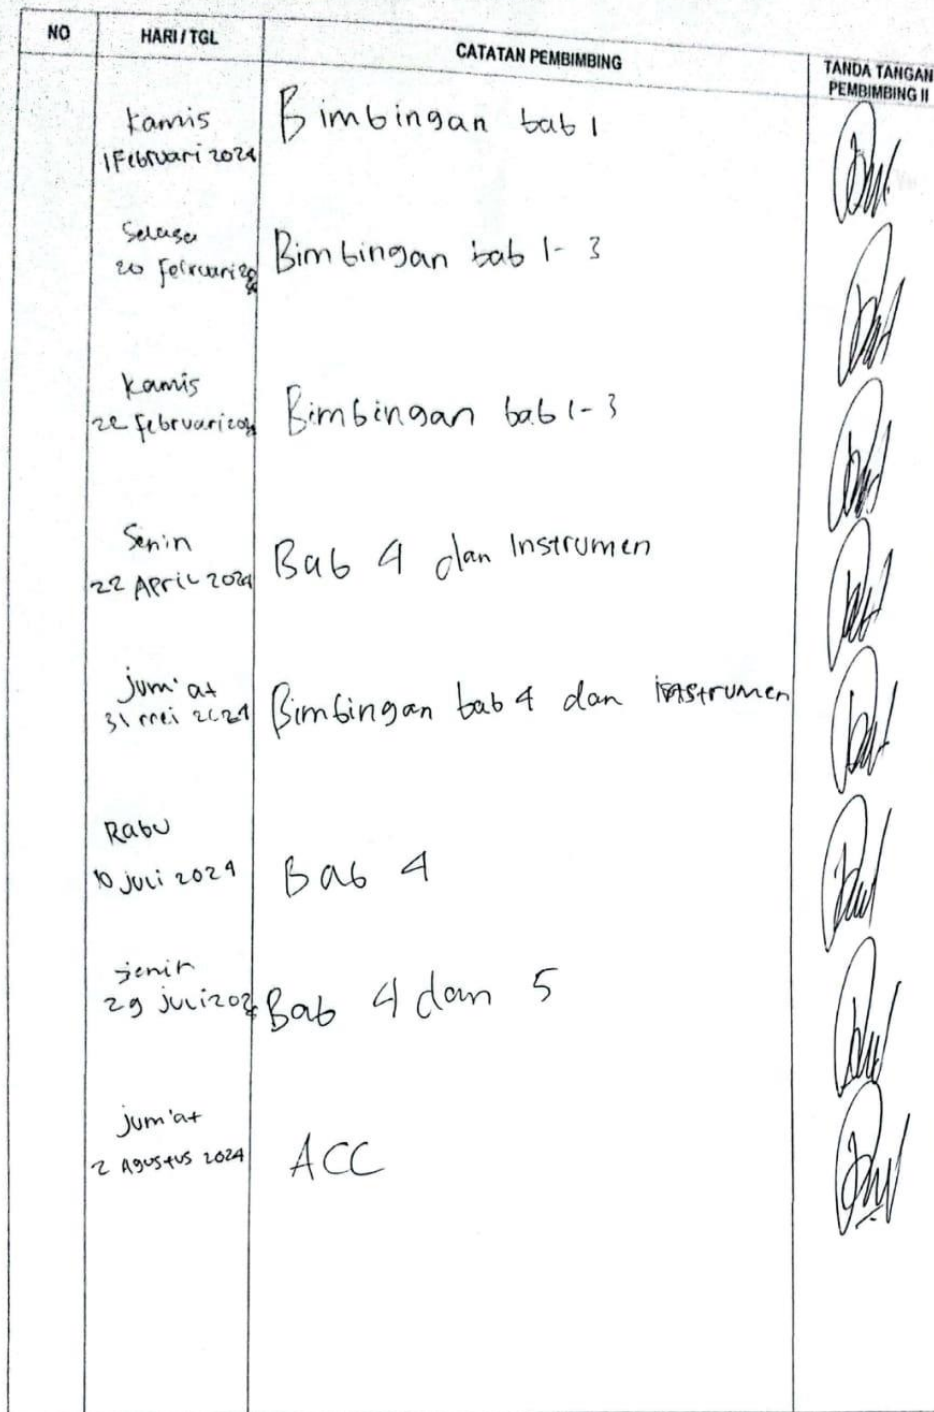 NO
HARI / TGL
CATATAN PEMBIMBING
TANDA TANGAN
PEMBIMBING II
kamis
1 Februari 2024
Bimbingan bab 1
Selasa
20 Februari 20
Bimbingan bab 1-3
Kamis
22 februari 2024
Bimbingan bab 1-3
Senin
22 April 2024
Bab 4 dan Instrumen
jum'at
31 mei 2024
Bimbingan bab 4 dan instrumen
Rabu
10 juli 2024
Bab 4
senin
29 juli 202
Bab 4 dan 5
jum'at
2 Agustus 2024
ACC